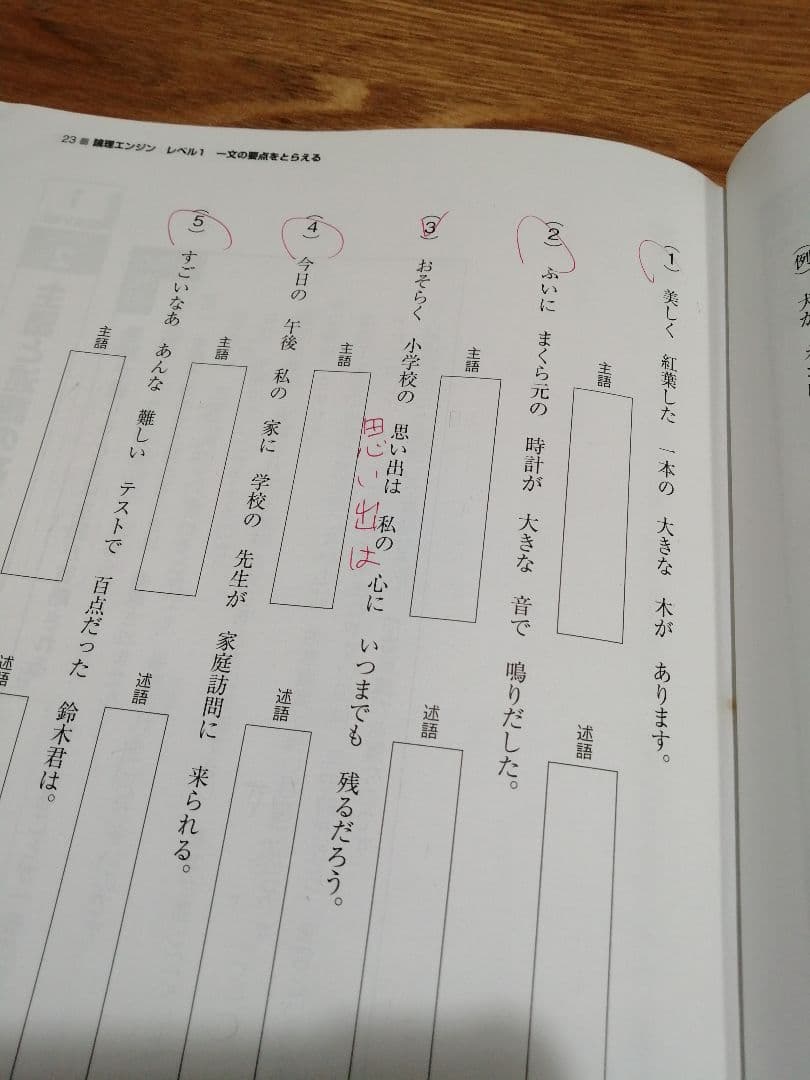 23 論理エンジン レベル1 一文の要点をとらえる
(例)
(1) 美しく 紅葉した 一本の 大きな 木が あります。
主語
述語
(2) ふいに まくら元の 時計が 大きな 音で 鳴りだした。
主語
述語
(3) おそらく 小学校の 思い出は 私の 心に いつまでも 残るだろう。
思い出は
主語
述語
(4) 今日の 午後 私の 家に 学校の 先生が 家庭訪問に 来られる。
主語
述語
(5) すごいなあ あんな 難しい テストで 百点だった 鈴木君は。
主語
述語